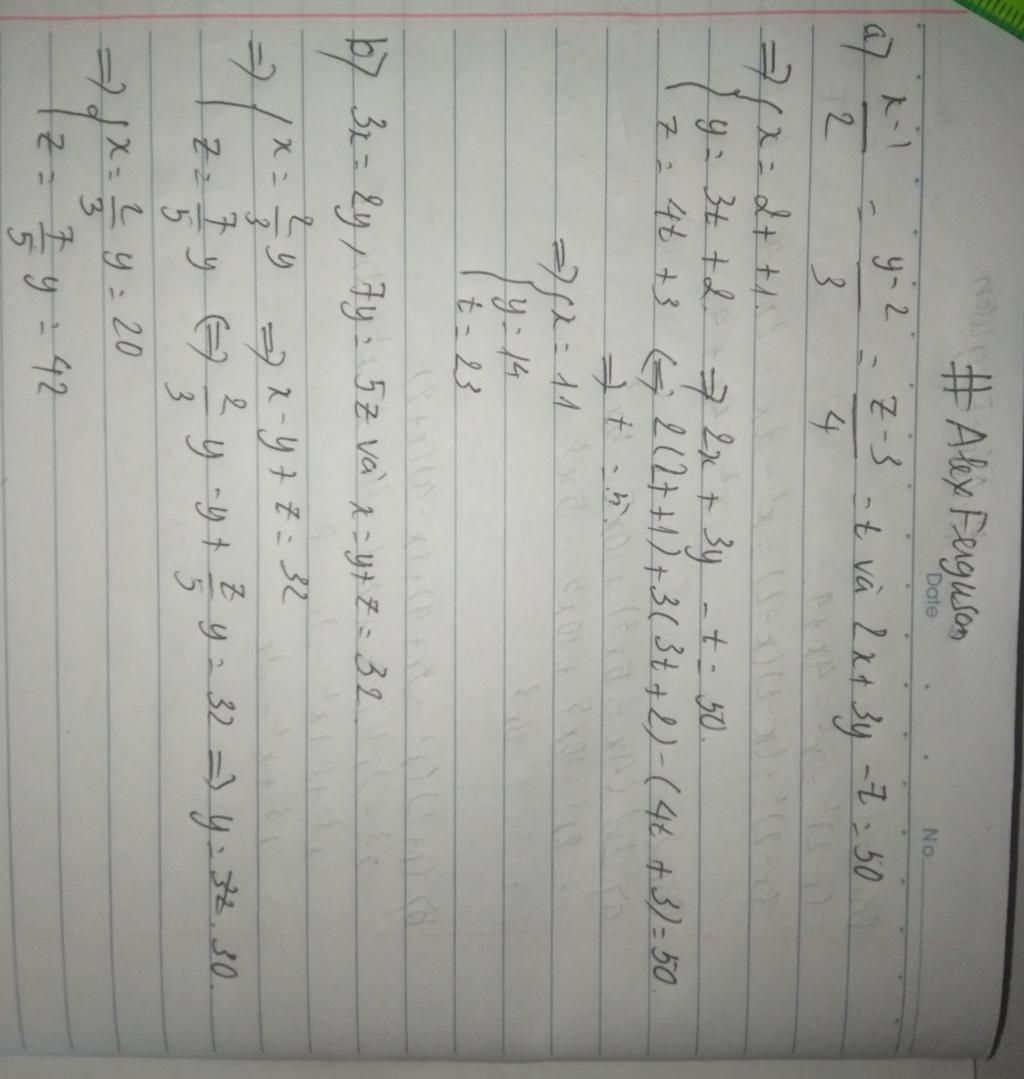 # Alex Ferguson
Date No.
a) x-1/2 = y-2/3 = z-3/4 = t và 2x+3y-z=50
=> { x = 2t+1
y = 3t+2 => 2x+3y-t=50.
z = 4t+3 (=) 2(2t+1)+3(3t+2)-(4t+3)=50.
=> t=5.
=> { x=11
y=14
t=23
b) 3x=2y, 7y=5z và x=y+z=32.
=> { x=2/3 y => x-y+z=32
z=7/5 y (=) 2/3 y -y+ 7/5 y=32 => y=30.
=> { x=2/3 y=20
z=7/5 y=42